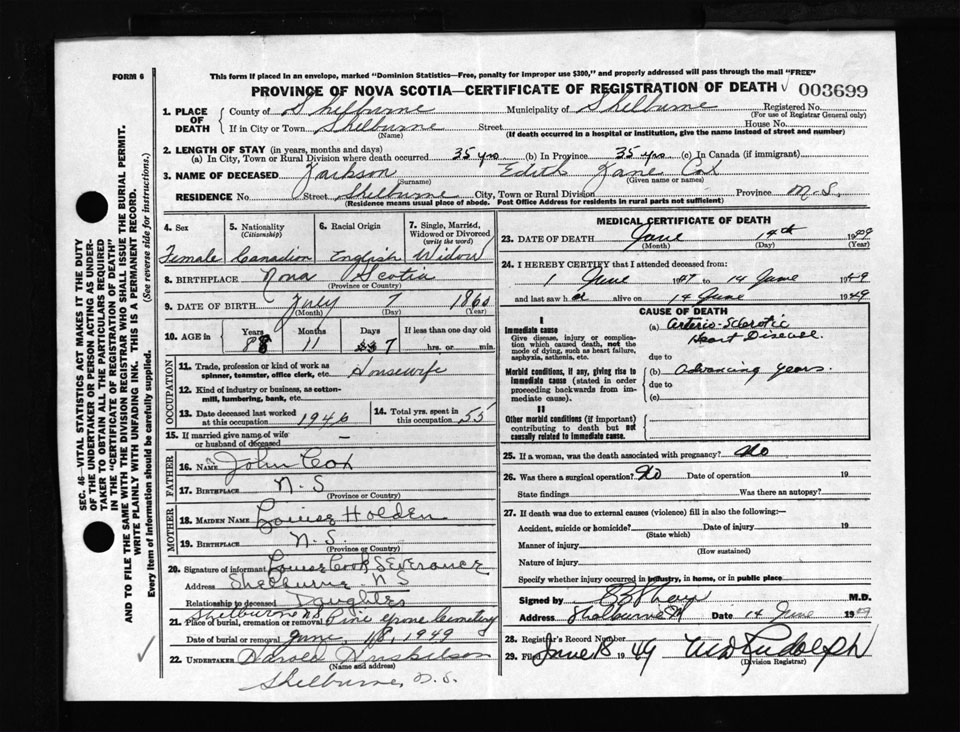 FORM 6
This form if placed in an envelope, marked "Dominion Statistics—Free, penalty for improper use $300," and properly addressed will pass through the mail "FREE"
PROVINCE OF NOVA SCOTIA—CERTIFICATE OF REGISTRATION OF DEATH 003699
1. PLACE OF DEATH
County of Shelburne Municipality of Shelburne Registered No.
(For use of Registrar General only)
If in City or Town Shelburne Street House No.
(Name) (If death occurred in a hospital or institution, give the name instead of street and number)
2. LENGTH OF STAY (in years, months and days)
(a) In City, Town or Rural Division where death occurred 35 yrs (b) In Province 35 yrs (c) In Canada (if immigrant)
3. NAME OF DECEASED Jackson Edith Jane Cox
(Surname) (Given name or names)
RESIDENCE No Street Shelburne City, Town or Rural Division Province N.S.
(Residence means usual place of abode. Post Office Address for residents in rural parts not sufficient)
SEC. 46—VITAL STATISTICS ACT MAKES IT THE DUTY
OF THE UNDERTAKER OR PERSON ACTING AS UNDER-
TAKER TO OBTAIN ALL THE PARTICULARS REQUIRED
IN THE "CERTIFICATE OF REGISTRATION OF DEATH"
AND TO FILE THE SAME WITH THE DIVISION REGISTRAR WHO SHALL ISSUE THE BURIAL PERMIT.
WRITE PLAINLY WITH UNFADING INK. THIS IS A PERMANENT RECORD.
Every item of information should be carefully supplied. (See reverse side for instructions.)
4. Sex
5. Nationality
(Citizenship)
6. Racial Origin
7. Single, Married, Widowed or Divorced
(write the word)
Female Canadian English Widow
8. BIRTHPLACE Nova Scotia
(Province or Country)
9. DATE OF BIRTH July 7 1860
(Month) (Day) (Year)
10. AGE in Years Months Days If less than one day old
88 11 7 hrs. or min.
OCCUPATION
11. Trade, profession or kind of work as
spinner, teamster, office clerk, etc. Housewife
12. Kind of industry or business, as cotton-
mill, lumbering, bank, etc.
13. Date deceased last worked
at this occupation 1946
14. Total yrs. spent in
this occupation 55
15. If married give name of wife
or husband of deceased —
FATHER
16. Name John Cox
17. Birthplace N.S
(Province or Country)
MOTHER
18. Maiden Name Louise Holden
19. Birthplace N.S.
(Province or Country)
20. Signature of informant Louise Cook Severance
Address Shelburne NS
Relationship to deceased Daughter
Shelburne NS
21. Place of burial, cremation or removal Pine Grove Cemetery
Date of burial or removal June 18, 1949
22. UNDERTAKER Harold
(Name and address)
Shelburne, N.S.
MEDICAL CERTIFICATE OF DEATH
23. DATE OF DEATH June 14th 1949
(Month) (Day) (Year)
24. I HEREBY CERTIFY that I attended deceased from:
1 June 1947 to 14 June 1949
and last saw h er alive on 14 June 1949
CAUSE OF DEATH
I
Immediate cause
Give disease, injury or complica-
tion which caused death, not the
mode of dying, such as heart failure,
asphyxia, asthenia, etc.
(a) Arterio-Sclerotic
Heart Disease.
due to
Morbid conditions, if any, giving rise to
immediate cause (stated in order
proceeding backwards from im-
mediate cause).
(b) Advancing years.
due to
(c)
II
Other morbid conditions (if important)
contributing to death but not
causally related to immediate cause.
25. If a woman, was the death associated with pregnancy? No
26. Was there a surgical operation? No Date of operation 19
State findings Was there an autopsy?
27. If death was due to external causes (violence) fill in also the following:—
Accident, suicide or homicide? Date of injury 19
(State which)
Manner of injury
(How sustained)
Nature of injury
Specify whether injury occurred in industry, in home, or in public place
Signed by M.D.
Address Shelburne Date 14 June 1949
28. Registrar's Record Number
29. Filed June 18 1949 Rudolph
(Division Registrar)